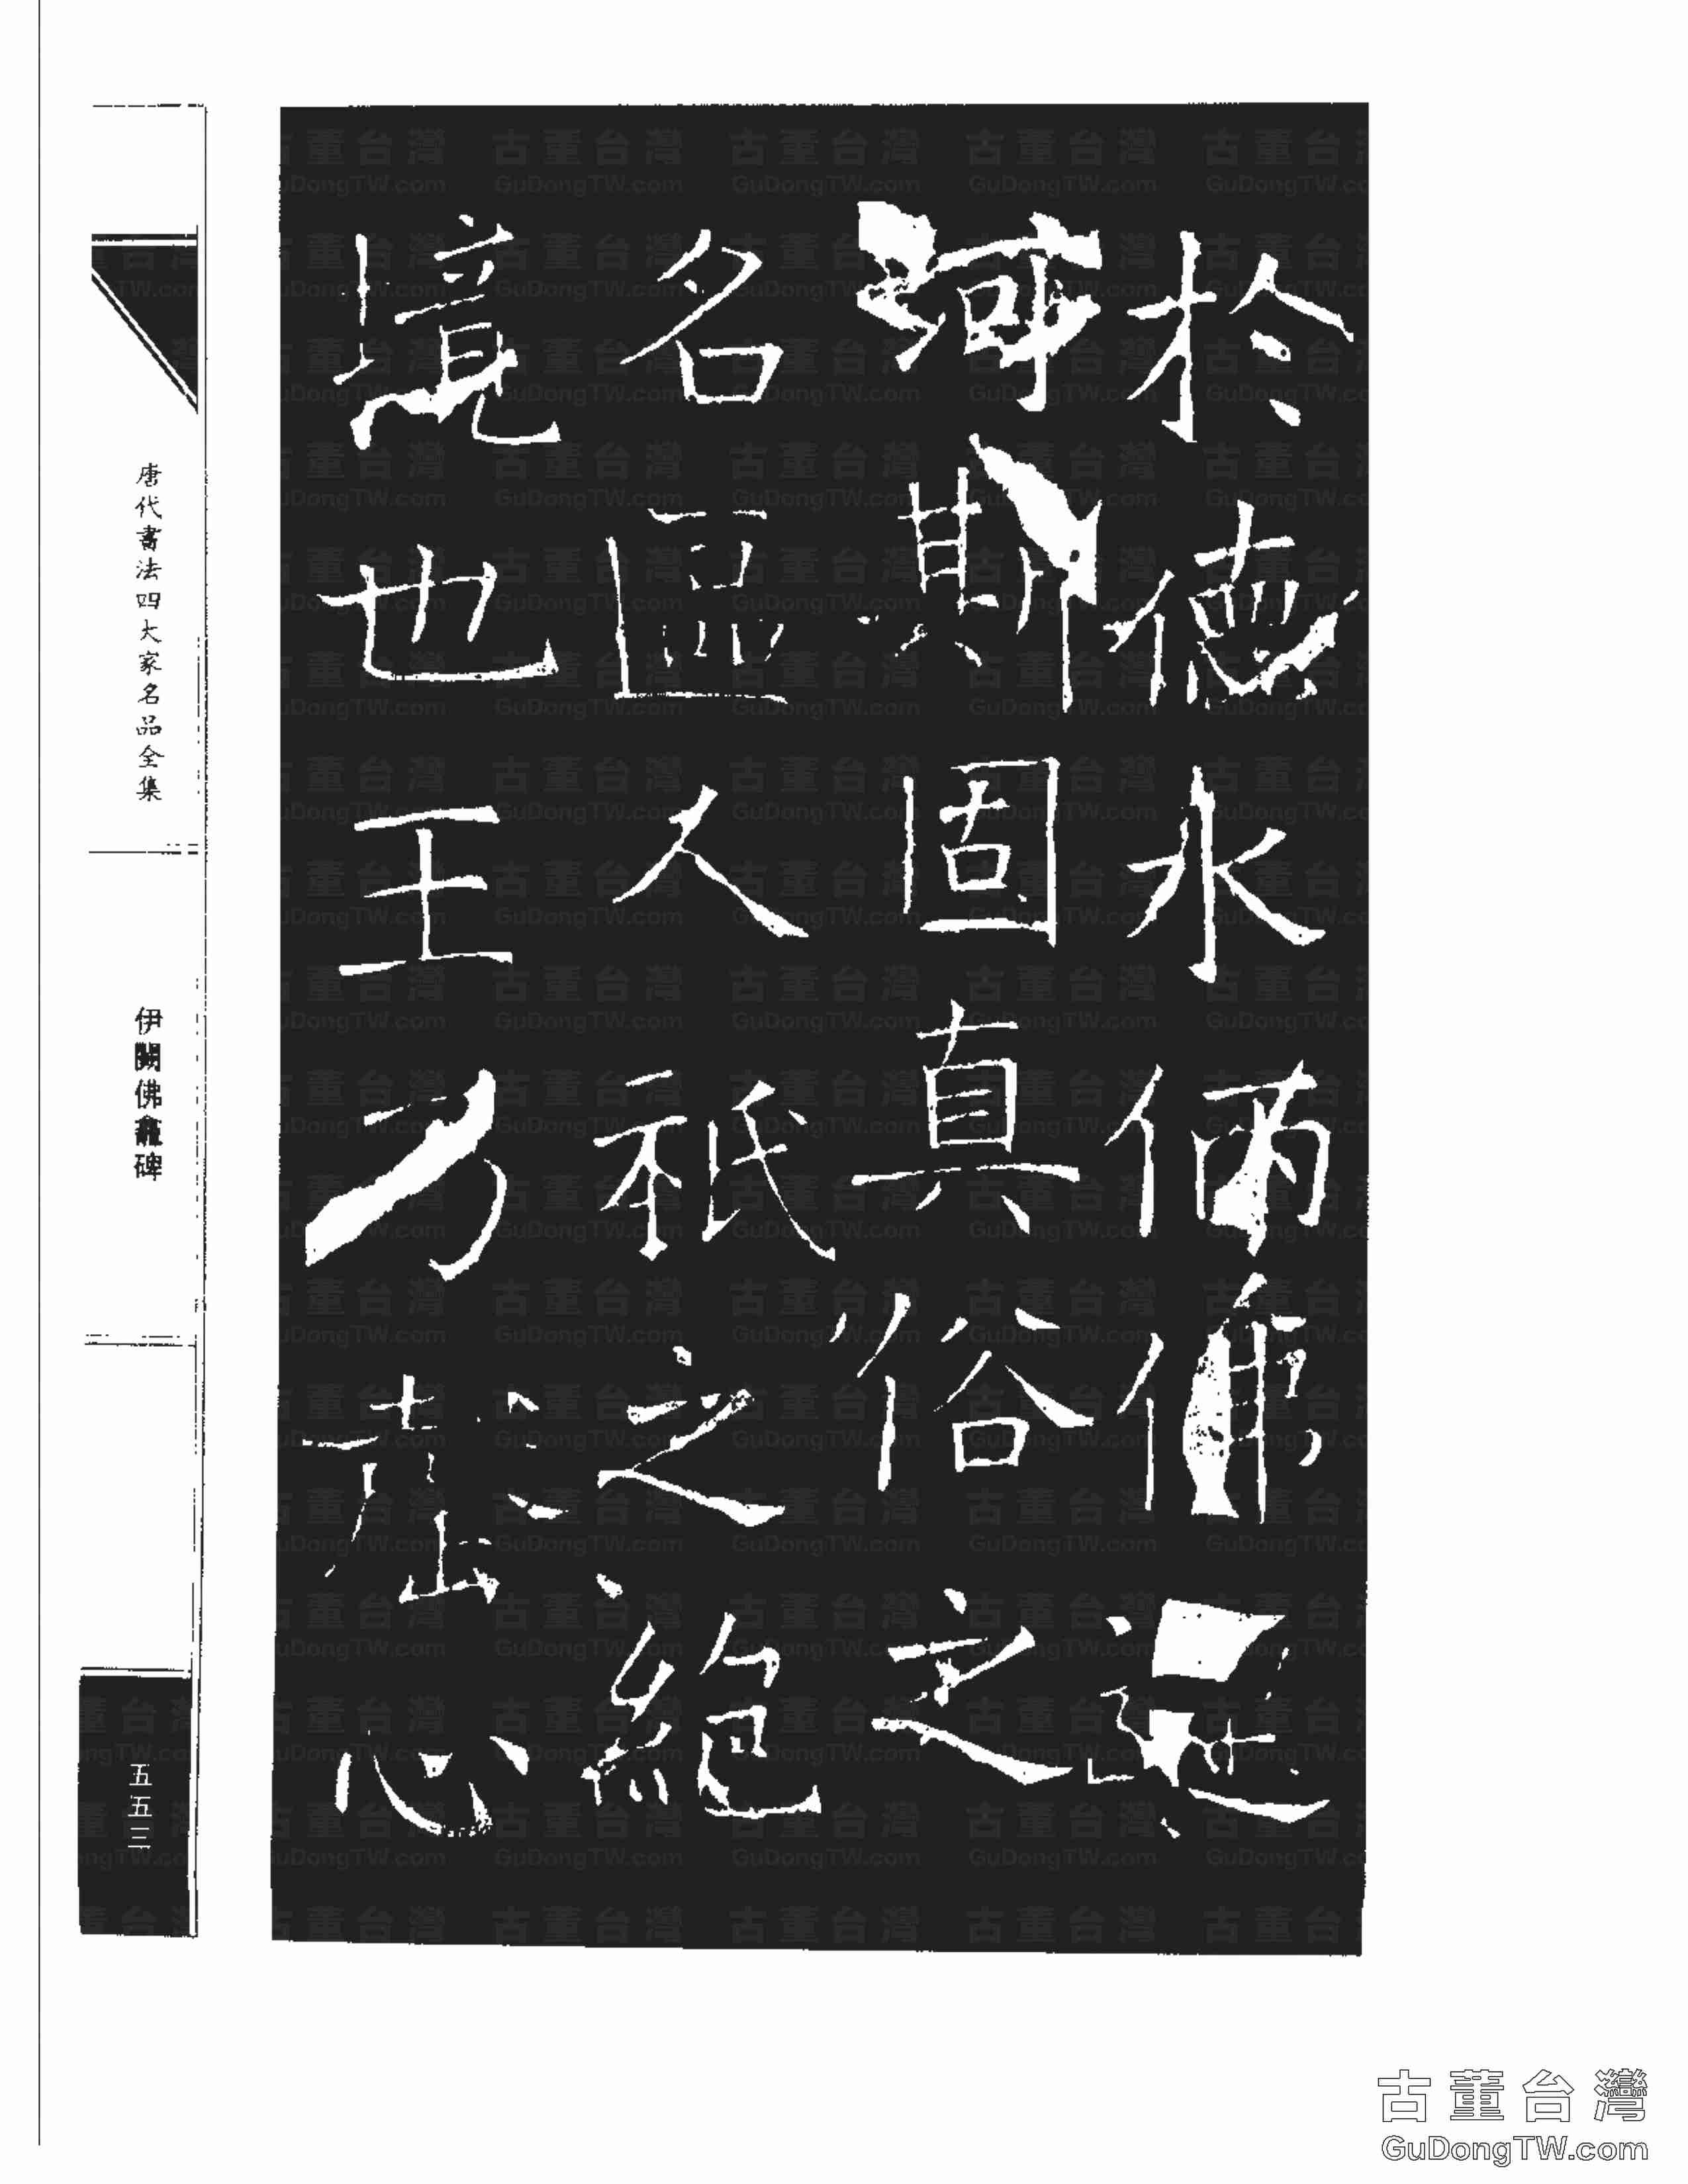 於德水俯佛逥
河斯固真俗之
名區人祇之絕
境也王乃罄心
唐代書法四大家名品全集
伊闕佛龕碑
五五三
古董台灣
GuDongTW.com